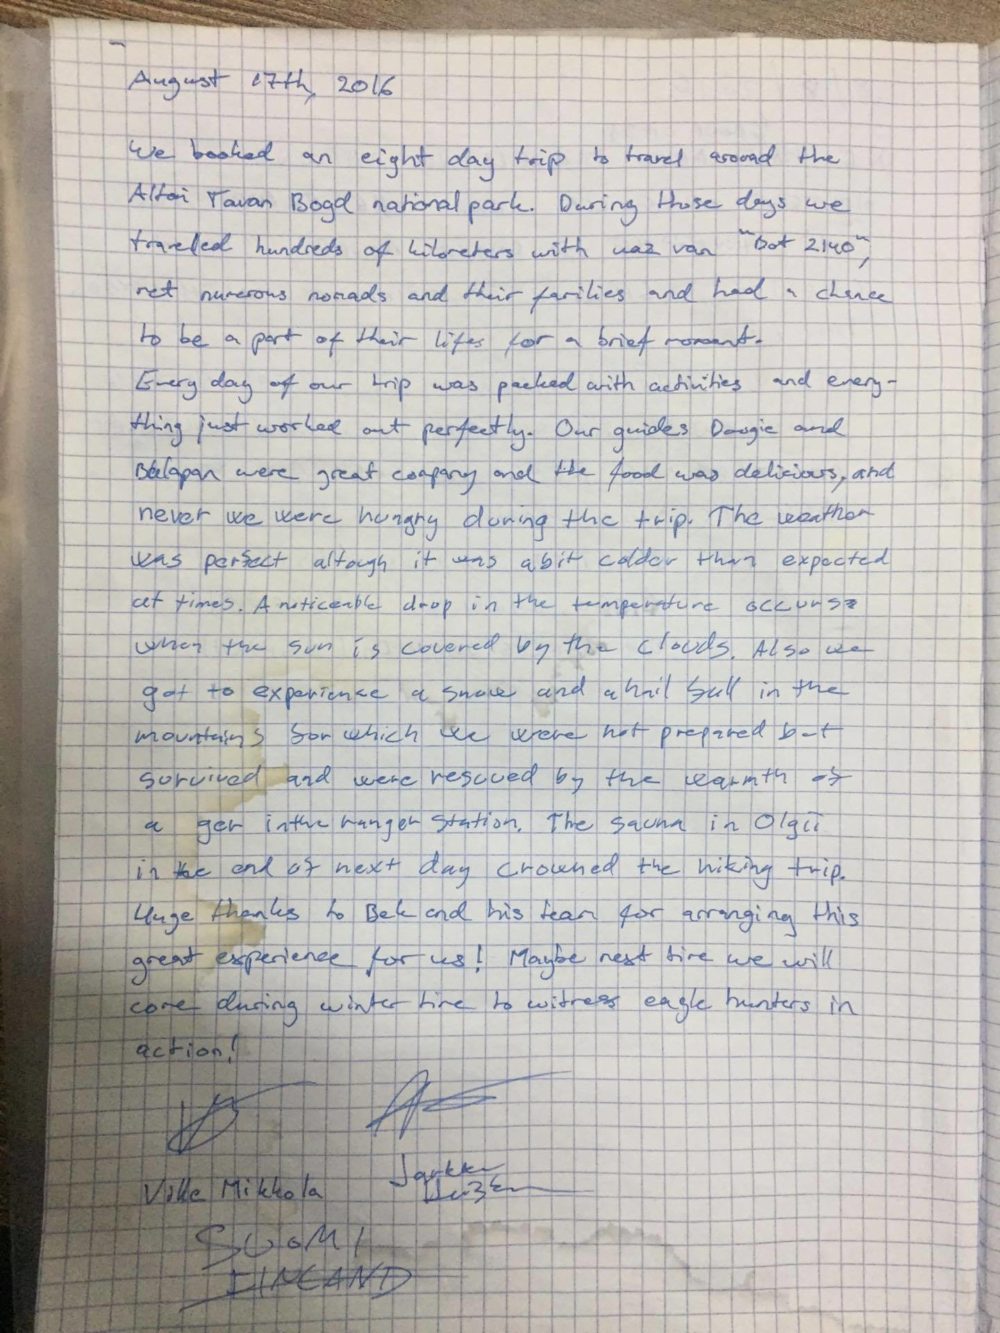 August 17th, 2016
We booked an eight day trip to travel around the
Altai Tavan Bogd national park. During those days we
travelled hundreds of kilometers with uaz van "Bot 2140",
met numerous nomads and their families and had a chance
to be a part of their lifes for a brief moment.
Every day of our trip was packed with activities and every-
thing just worked out perfectly. Our guides Doogie and
Balapan were great company and the food was delicious, and
never we were hungry during the trip. The weather
was perfect altough it was a bit colder than expected
at times. A noticeable drop in the temperature occurs
when the sun is covered by the clouds. Also we
got to experience a snow and a hail fall in the
mountains for which we were not prepared but
survived and were rescued by the warmth of
a ger in the ranger station. The sauna in Olgii
in the end of next day crowned the hiking trip.
Huge thanks to Bek and his team for arranging this
great experience for us! Maybe next time we will
come during winter time to witness eagle hunters in
action!
Ville Mikkola Jarkko
SUOMI
FINLAND